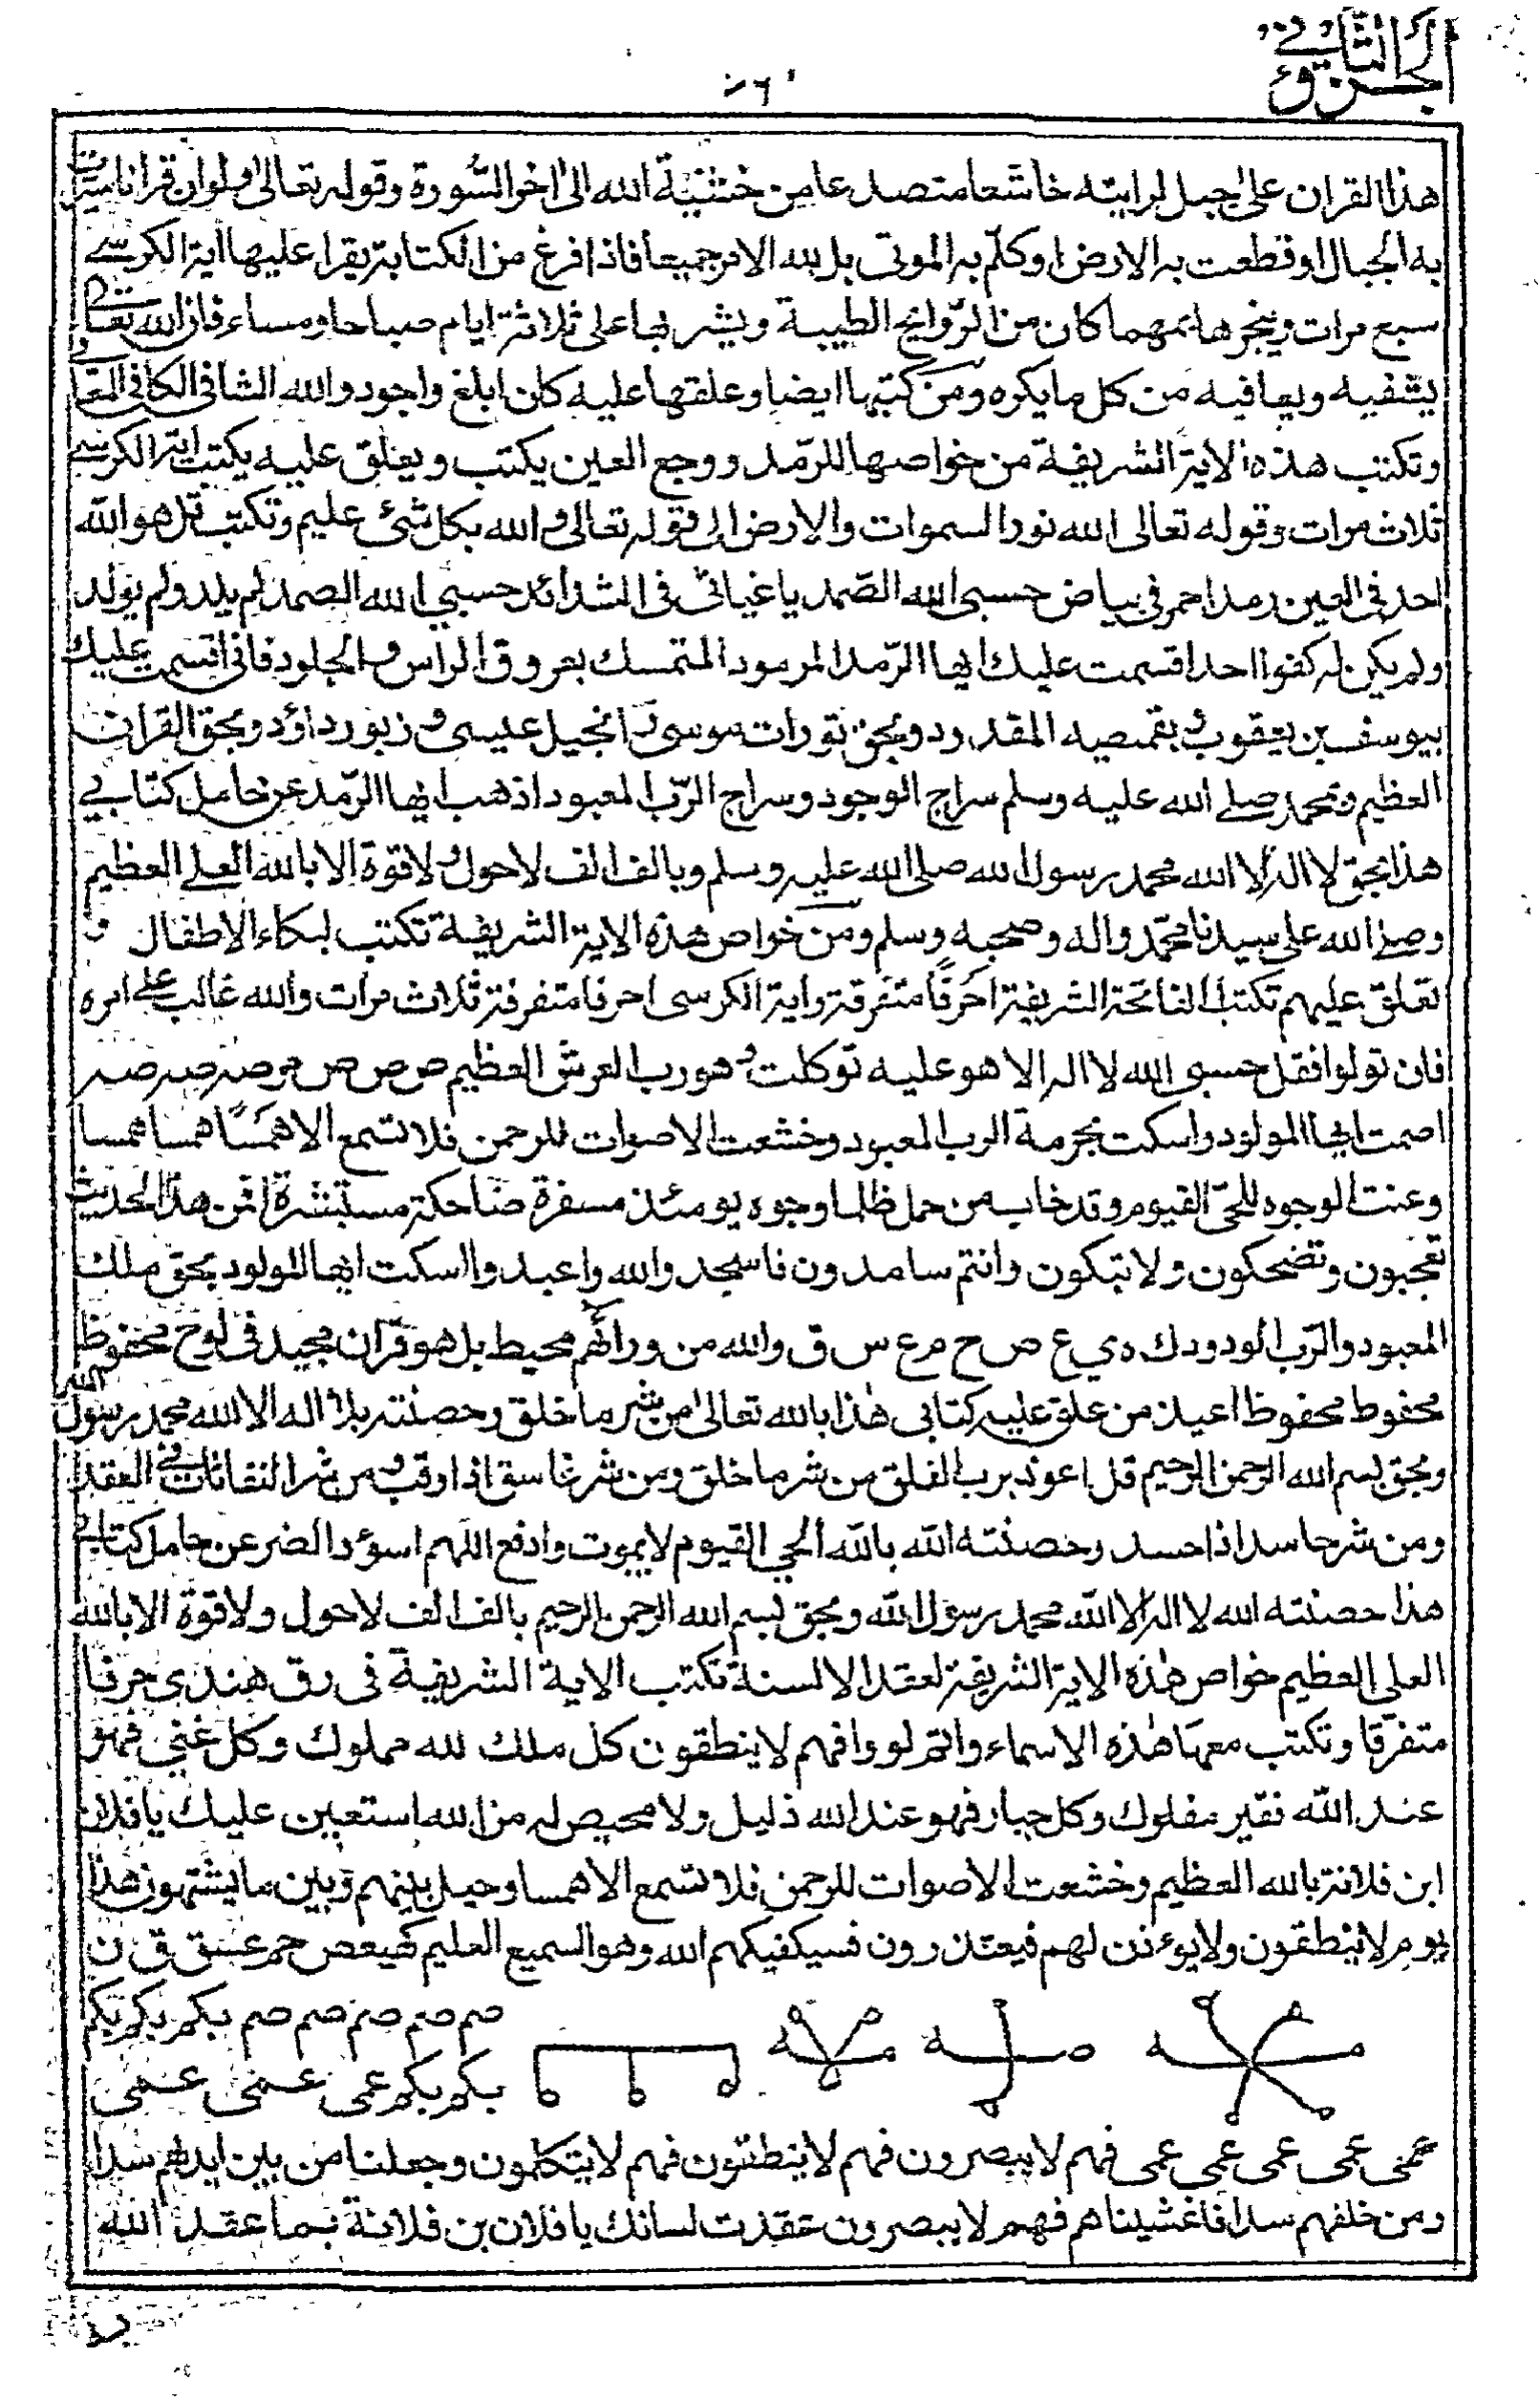 الجزء الثاني
هذا القران على جبل لرايته خاشعا متصدعا من خشية الله الى اخر السورة وقوله تعالى ولو ان قرانا سيرت
به الجبال او قطعت به الارض او كلم به الموتى بل لله الامر جميعا فاذا فرغ من الكتابة يقرا عليها اية الكرسى
سبع مرات ويبخرها بمهما كان من الروايح الطيبة ويشربها على ثلاثة ايام صباحا ومساء فان الله تعالى
يشفيه ويعافيه من كل ما يكره ومن كتبها ايضا وعلقها عليه كان ابلغ واجود والله الشافى الكافى المعافى
وتكتب هذه الاية الشريفة من خواصها للرمد ووجع العين يكتب ويعلق عليه يكتب اية الكرسى
ثلاث مرات وقوله تعالى الله نور السموات والارض الى قوله تعالى والله بكل شئ عليم وتكتب قل هو الله
احد فى العين رمد احمر فى بياض حسبى الله الصمد يا غياثى فى الشدائد حسبي الله الصمد لم يلد ولم يولد
ولم يكن له كفوا احد اقسمت عليك ايها الرمد المرمود المتمسك بعروق الراس والجلود فانى اقسمت عليك
بيوسف بن يعقوب وبقميصه المقدود وبحق تورات موسى وانجيل عيسى وزبور داؤد وبحق القران
العظيم ومحمد صلى الله عليه وسلم سراج الوجود وسراج الرب المعبود اذهب ايها الرمد عن حامل كتابي
هذا بحق لا اله الا الله محمد رسول الله صلى الله عليه وسلم وبالف الف لا حول ولا قوة الا بالله العلى العظيم
وصلى الله على سيدنا محمد واله وصحبه وسلم ومن خواص هذه الاية الشريفة تكتب لبكاء الاطفال و
تعلق عليهم تكتب الفاتحة الشريفة احرفا متفرقة واية الكرسى احرفا متفرقة ثلاث مرات والله غالب على امره
فان تولوا فقل حسبى الله لا اله الا هو عليه توكلت وهو رب العرش العظيم ص ص ص ص صه صه صه
اصمت ايها المولود واسكت بحرمة الرب المعبود وخشعت الاصوات للرحمن فلا تسمع الا همسا همسا همسا
وعنت الوجوه للحى القيوم وقد خاب من حمل ظلما وجوه يومئذ مسفرة ضاحكة مستبشرة افمن هذا الحديث
تعجبون وتضحكون ولا تبكون وانتم سامدون فاسجدوا لله واعبدوا اسكت ايها المولود بحق ملك
المعبود والرب الودود ك ه ي ع ص ح م ع س ق والله من ورائهم محيط بل هو قران مجيد فى لوح محفوظ
محفوظ محفوظ اعيذ من علق عليه كتابى هذا بالله تعالى من شر ما خلق وحصنته بلا اله الا الله محمد رسول الله
وبحق بسم الله الرحمن الرحيم قل اعوذ برب الفلق من شر ما خلق ومن شر غاسق اذا وقب ومن شر النفاثات فى العقد
ومن شر حاسد اذا حسد وحصنته الله بالله الحي القيوم لا يموت وادفع اللهم اسؤد الضر عن حامل كتابى
هذا حصنته الله لا اله الا الله محمد رسول الله وبحق بسم الله الرحمن الرحيم بالف الف لا حول ولا قوة الا بالله
العلى العظيم خواص هذه الاية الشريفة لعقد الالسنة تكتب الاية الشريفة فى رق هندى حرفا
متفرقا وتكتب معها هذه الاسماء والتم لووا فهم لا ينطقون كل ملك لله مملوك وكل غنى فهو
عند الله فقير مفلوك وكل جبار فهو عند الله ذليل ولا محيص له من الله استعين عليك يا فلان
ابن فلانة بالله العظيم وخشعت الاصوات للرحمن فلا تسمع الا همسا وحيل بينهم وبين ما يشتهون هذا
يوم لا ينطقون ولا يوءذن لهم فيعتذرون فسيكفيكهم الله وهو السميع العليم كهيعص حم عسق ق ن
صم صم صم صم صم بكم بكم بكم
بكم بكم عمى عمى عمى
عمى عمى عمى عمى عمى فهم لا يبصرون فهم لا ينطقون فهم لا يتكلمون وجعلنا من بين ايديهم سدا
ومن خلفهم سدا فاغشيناهم فهم لا يبصرون عقدت لسانك يا فلان بن فلانة بما عقد الله